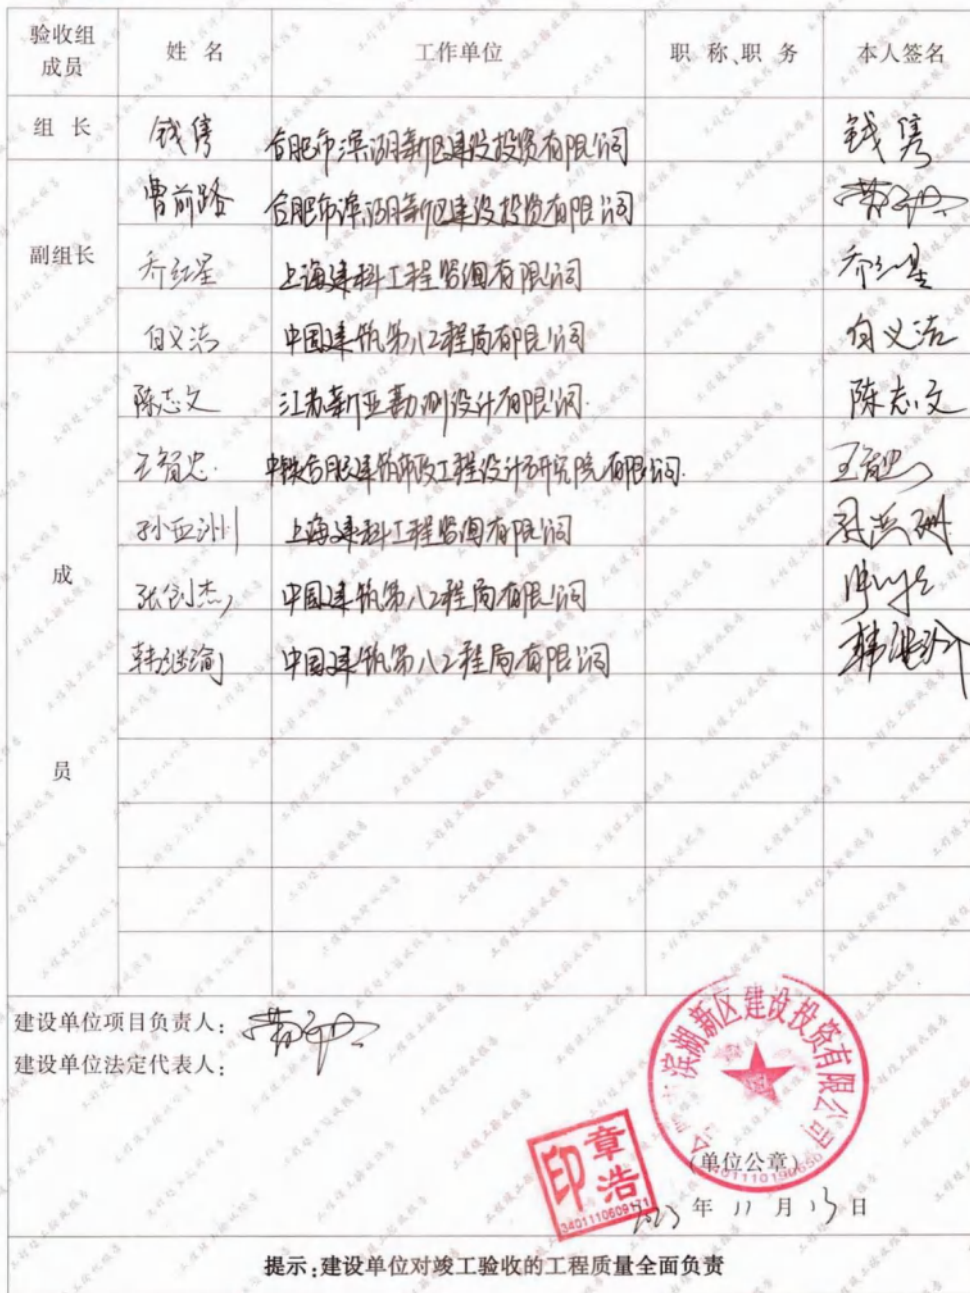 验收组成员 姓名 工作单位 职称、职务 本人签名
组长 钱隽 合肥市滨湖新区建设投资有限公司 钱隽
曹前路 合肥市滨湖新区建设投资有限公司
副组长 乔红星 上海建科工程咨询有限公司 乔红星
白义洁 中国建筑第八工程局有限公司 白义洁
陈志文 江苏新亚勘测设计有限公司 陈志文
王智忠 中铁合肥建筑市政工程设计研究院有限公司 王智忠
孙亚洲 上海建科工程咨询有限公司
成 张剑杰 中国建筑第八工程局有限公司
韩继瑜 中国建筑第八工程局有限公司
员
建设单位项目负责人:
建设单位法定代表人:
滨湖新区建设投资有限公司
(单位公章)
章浩印
3401110609171
年 11 月 13 日
提示:建设单位对竣工验收的工程质量全面负责
工程竣工验收报告